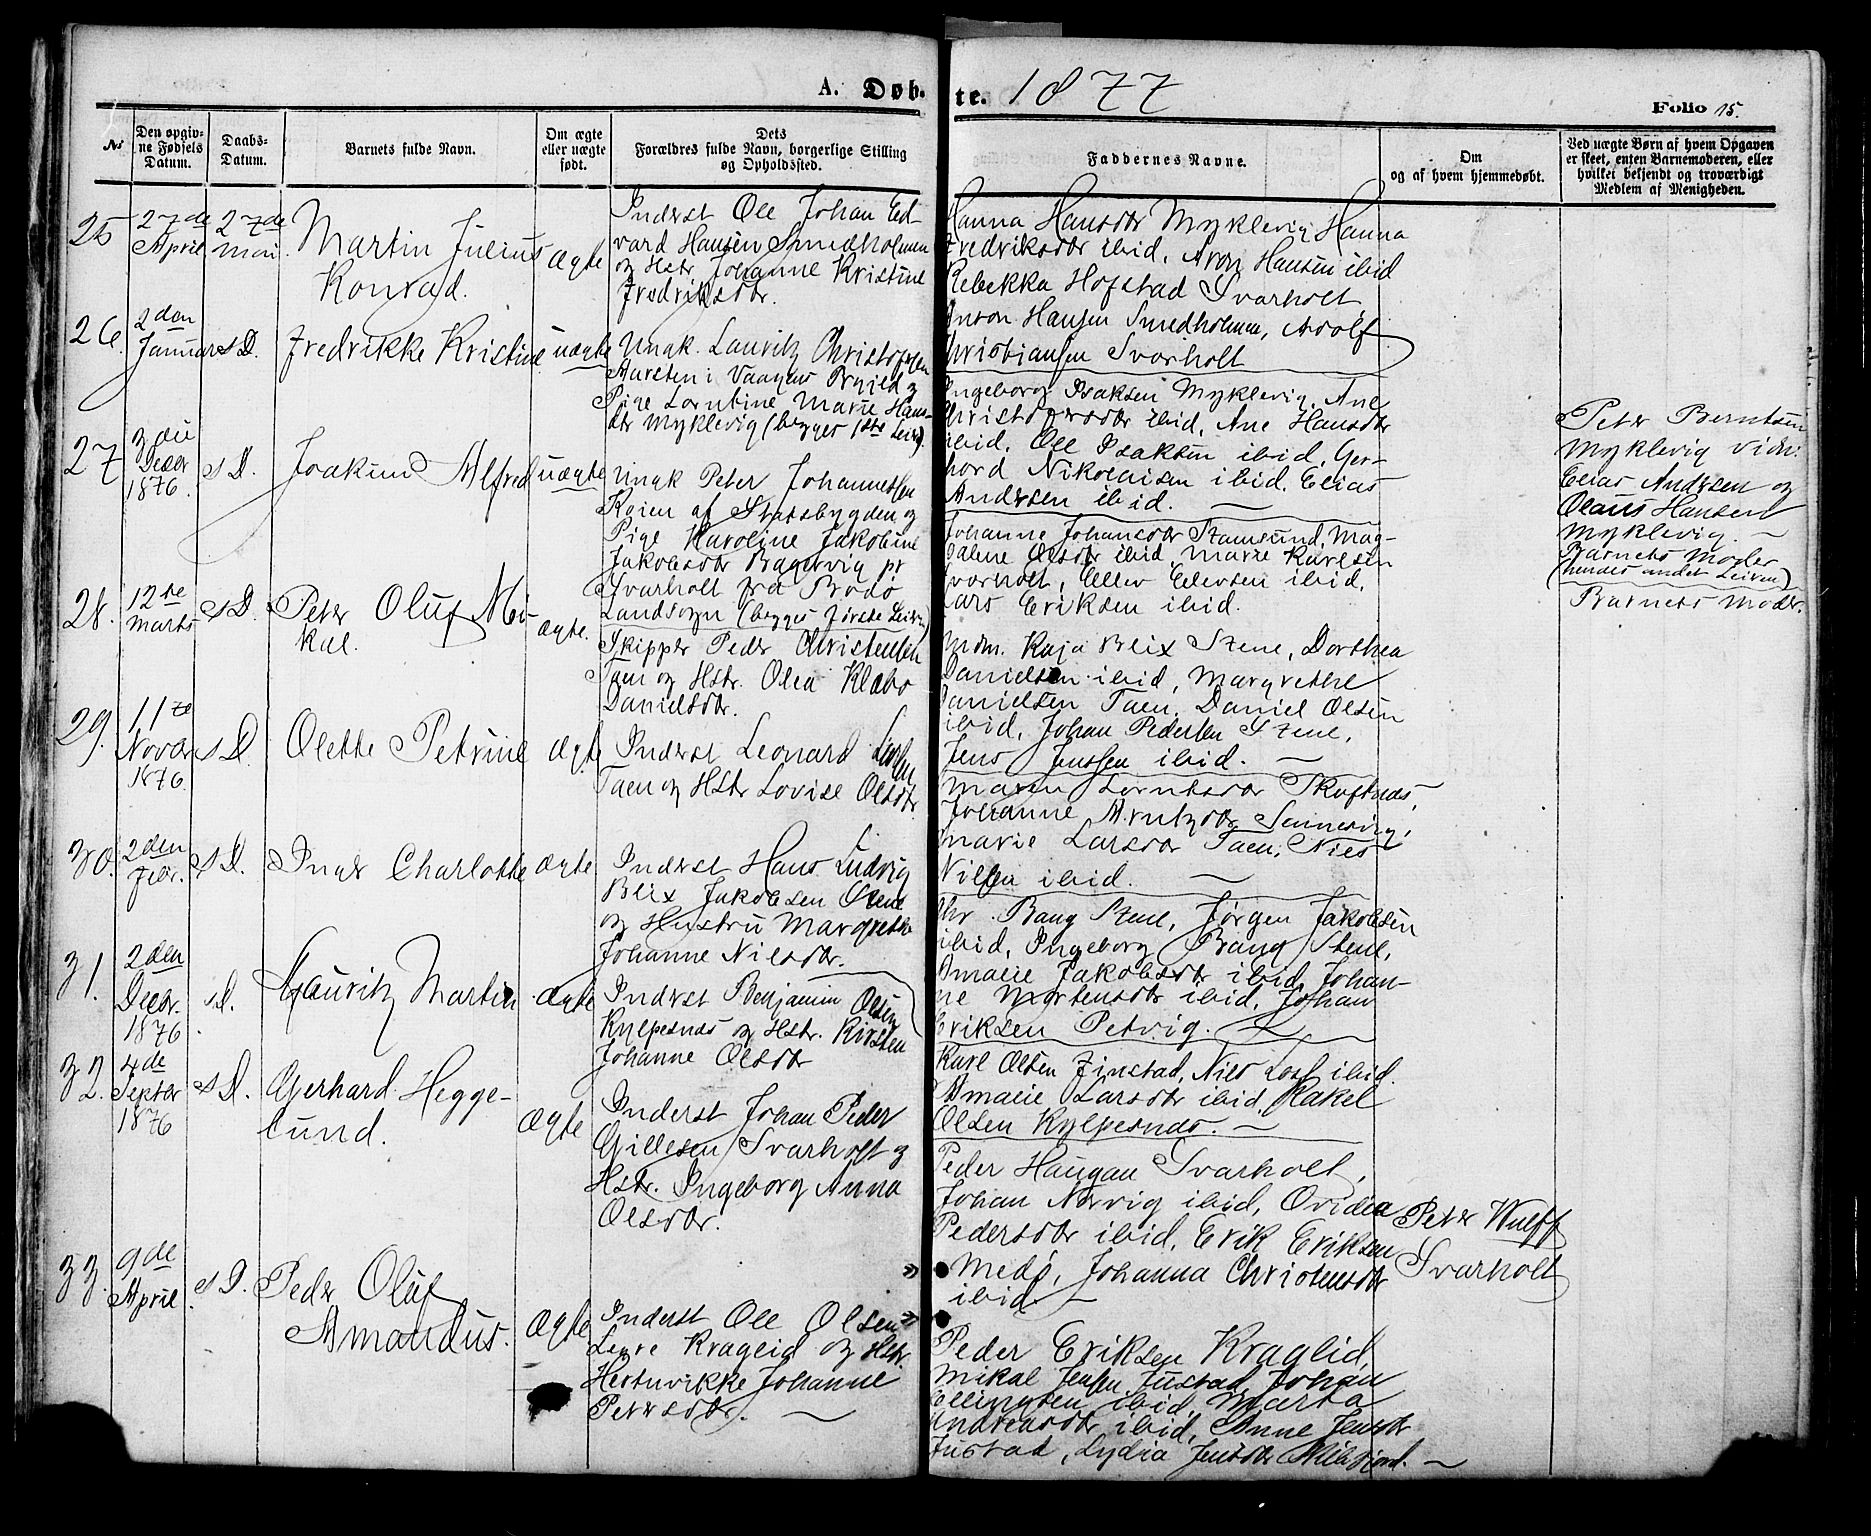 A. Døb-
te. 1877
Folio 15.
№
Den opgiv-
ne Fødsels
Datum.
Daabs-
Datum.
Barnets fulde Navn.
Om ægte
eller uægte
født.
Dets
Forældres fulde Navn, borgerlige Stilling
og Opholdssted.
Faddernes Navne.
Om
og af hvem hjemmedøbt.
Ved uægte Børn af hvem Opgaven
er skeet, enten Barnemoderen, eller
hvilket bekjendt og troværdigt
Medlem af Menigheden.
25
27de
April
27de
Mai
Martin Julius
Konrad.
ægte
Inderst Ole Johan Ed-
vard Hansen Smedholmen
og Hstr. Johanne Kristine
Fredriksdr.
Hanna Hansdr Myklevig, Hanna
Fredriksdr ibid, Aron Hansen ibid
Rebekka Hofstad Svarholt
Anton Hansen Smedholmen, Adolf
Christiansen Svarholt
26.
2den
Januar
s D.
Fredrikke Kristine
uægte
Ungk. Lauritz Christofersen
i Vaagens Prgjeld og
Pige Lorntine Marie Hans-
dtr Myklevig (begges 1ste Leier)
Ingeborg Isaksen Myklevig, Ane
Christofersdr ibid, Ane Hansdr
ibid, Ole Isaksen ibid, Ger-
hard Nikolaisen ibid, Elias
Andersen ibid.
Peter Berntsen
Myklevig
Elias Andersen og
Olaus Hansen
Myklevig.
Barnets Moder
(hendes andet Leier)
27
3die
Decbr
1876.
s D.
Joakim Alfred
uægte
Ungk Peter Johannessen
af Statsbygden og
Pige Karoline Jakobine
Jakobsdr pt
Svarholt fra Bodø
Landsogn (begges første Leier)
Johanne Johansdr Stamsund, Mag-
dalene Olsdr ibid, Marie Karlsen
Svarholt, Ellev Elevsen ibid,
Lars Eriksen ibid.
Barnets Moder.
28.
12te
Marts
s D.
Peter Oluf Mi-
kal.
ægte.
Skipper Peder Christensen
Taen og Hstr. Olea Klæbo
Danielsdr.
Mdm. Kaja Blix Stene, Dorthea
Danielsen ibid, Margrethe
Danielsen Taen, Daniel Olsen
ibid, Johan Pedersen Stene,
Jens Jenssen ibid.
29.
11te
Novbr
1876.
s D.
Olette Petrine
ægte
Inderst Leonard
Taen og Hstr Lovise Olsdr
Maren Lorntsdr Skuftnes,
Johanne Arntzdr Sennesvig,
Marie Larsdr Taen, Niels
Nilsen ibid.
30.
2den
Febr.
s D.
Inger Charlotte
ægte
Inderst Hans Ludvig
Blix Jakobsen Stene
og Hustru Margrethe
Johanne Nilsdr.
Chr. Bang Stene, Jørgen Jakobsen
ibid, Ingeborg Bang Stene,
Amalie Jakobsdr ibid, Johan-
ne Mortensdr ibid, Johan
Eriksen Petvig.
31.
2den
Decbr.
1876.
s D.
Lauritz Martin
ægte
Inderst Benjamin Olsen
Kylpesnes og Hstr. Kirsten
Johanne Olsdr
Karl Olsen Finstad, Niels Lost ibid.
Amalie Larsdr ibid, Rakel
Olsen Kylpesnes.
32.
4de
Septbr
1876
s D.
Gerhard Hegge-
lund.
ægte
Inderst Johan Peder
Gillesen Svarholt og
Hstr. Ingeborg Anna
Olsdr.
Peder Haugan Svarholt,
Johan Norvig ibid, Ovidia
Pedersdr ibid, Erik Eriksen
Medø, Johanna Christensdr
ibid.
Peter Wulff
Svarholt
33.
9de
April
s D.
Peder Oluf
Amandus.
ægte
Inderst Ole Olsen
Leere Krageid og Hstr.
Hertnvikke Johanne
Petersdr.
Peder Eriksen Kraglid,
Mikal Jensen Justad, Johan
Ellingsen ibid, Marta
Andreasdr ibid, Anne Jensdr
Justad, Lydia Jensdr